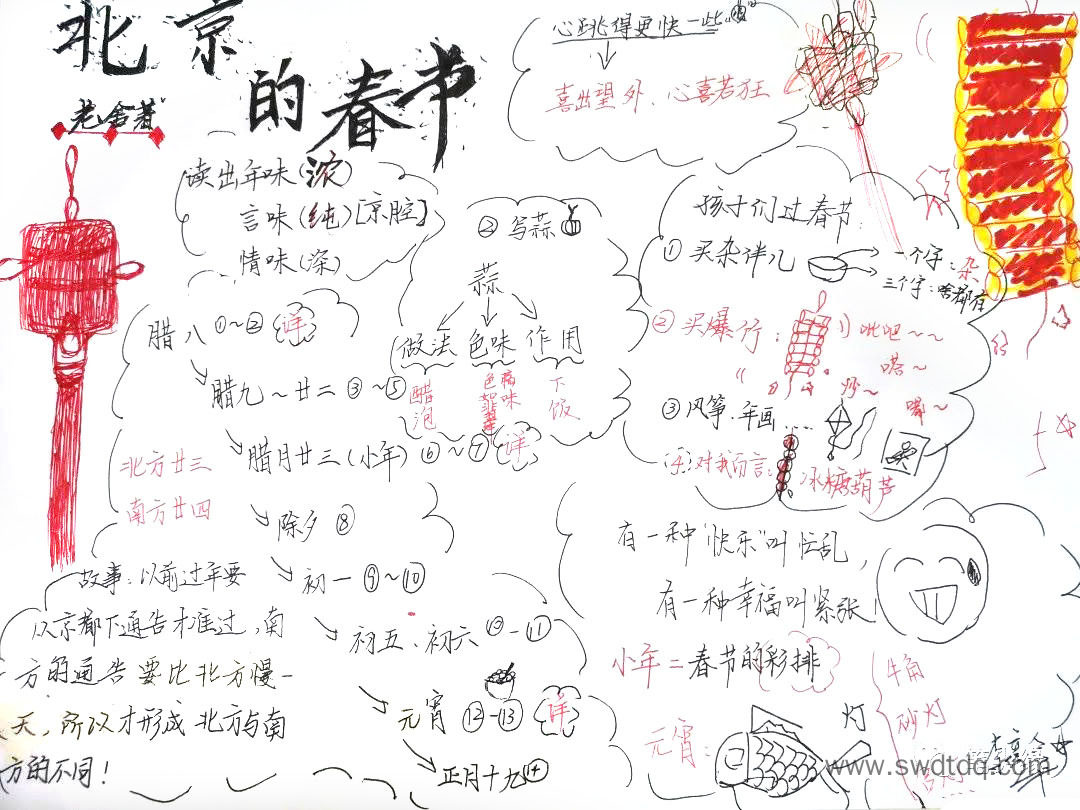 北京
的春节
老舍著
读出年味（浓）
言味（纯）[京腔]
情味（深）
心跳得更快一些
喜出望外、心喜若狂
② 写蒜
蒜
做法 色味 作用
醋泡
色翡翠
味
下饭
腊八 ①～② 详
腊九～廿二 ③～⑤
腊月廿三（小年）⑥～⑦ 详
北方廿三
南方廿四
除夕 ⑧
初一 ⑨～⑩
初五、初六 ⑩-⑪
元宵 ⑫-⑬ 详
正月十九 ⑭
故事：以前过年要
从京都下通告才准过，南
方的通告要比北方慢一
天，所以才形成北方与南
方的不同！
孩子们过春节：
① 买杂拌儿
一个字：杂
三个字：啥都有
② 买爆竹：
吡吧～～
嗒～
炒～
③ 风筝、年画……
④ 对我而言：冰糖葫芦
有一种“快乐”叫忙乱，
有一种幸福叫紧张！
小年=春节的彩排
元宵：
灯
牛角
砂灯
www.swdtdq.com